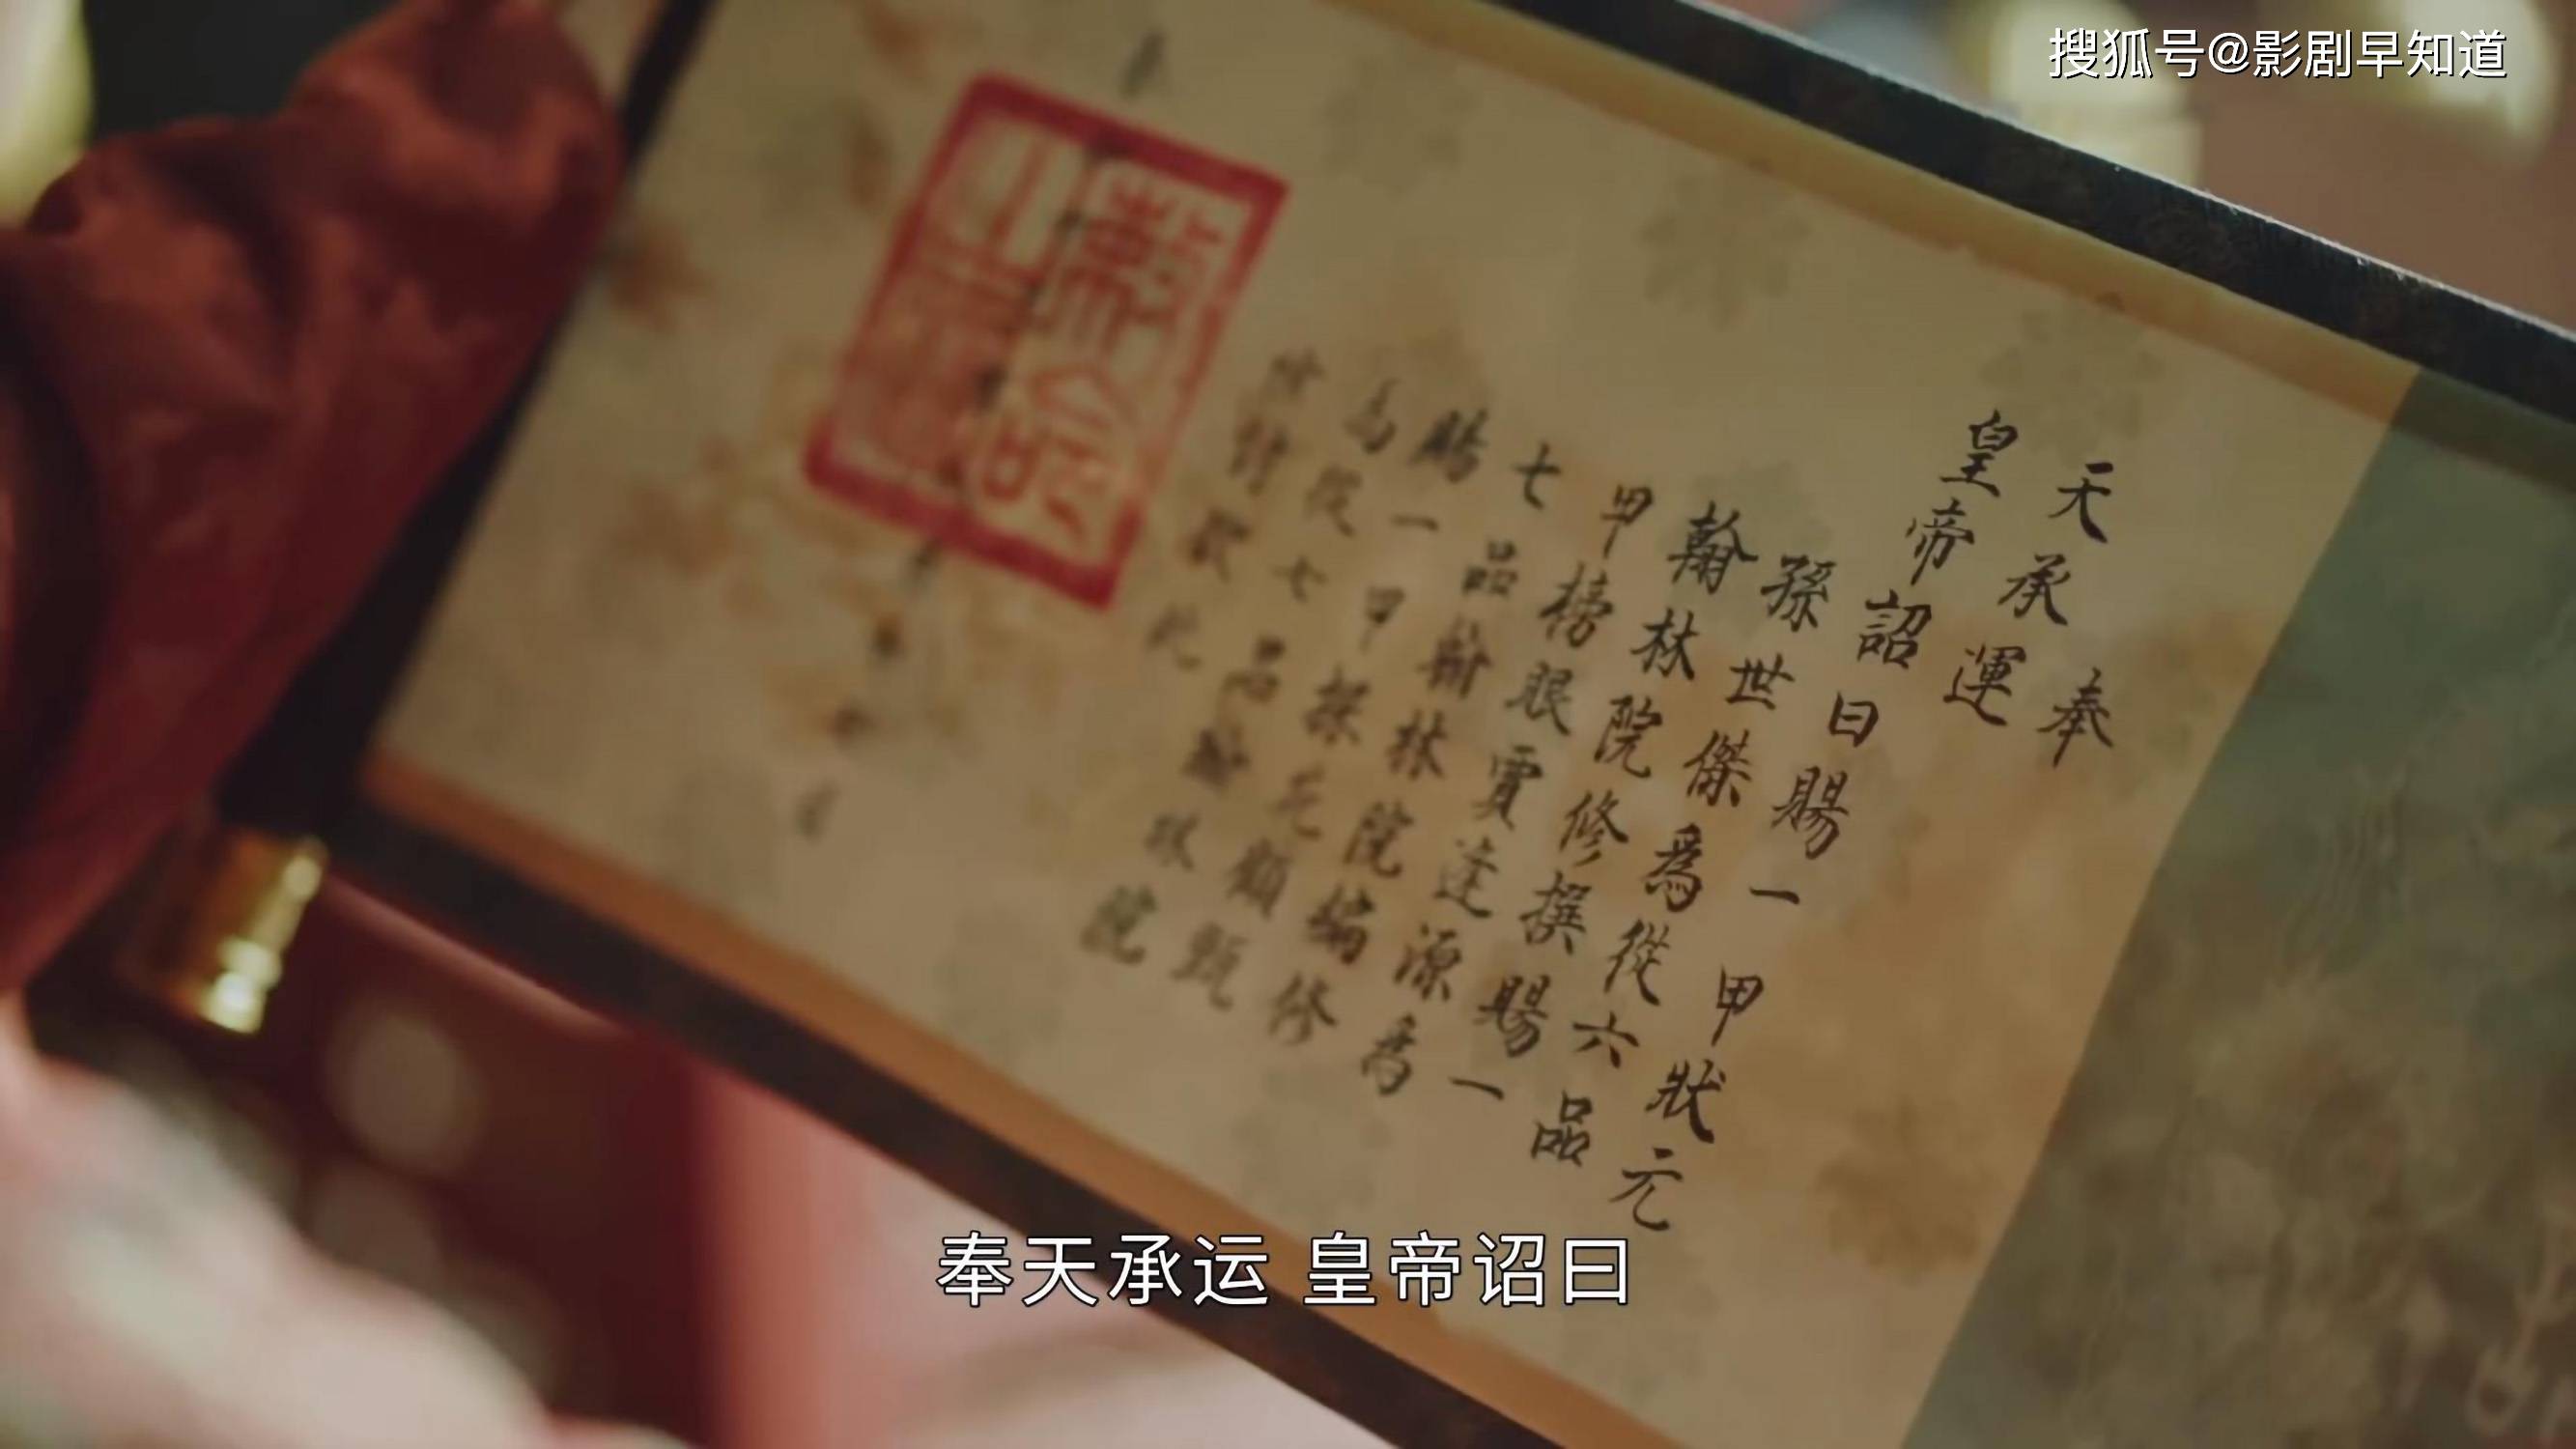 搜狐号@影剧早知道
奉
天承運
皇帝詔曰賜一甲狀元
孫世傑為從六品
翰林院修撰賜一
甲榜眼賈達源為
七品翰林院編修
賜一甲探花顧甄
為從七品翰林院
檢討欽此
敕命
奉天承运 皇帝诏曰